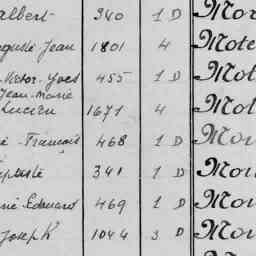 albert 340 1 D Mor
guste Jean 1801 4 Mote
Victor-Yves 455 1 D Mot
Jean-Marie
Lucien 1671 4 Mot
é-François 468 1 D Mou
341 1 D Mou
né Edouard 469 1 D Mou
Joseph 1044 3 D Mou